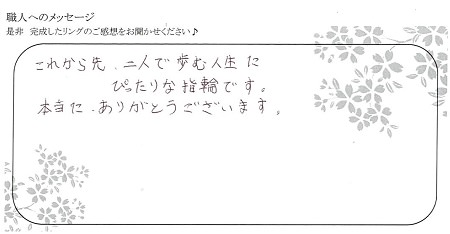 職人へのメッセージ
是非 完成したリングのご感想をお聞かせください♪
これから先、二人で歩む人生に
ぴったりな指輪です。
本当に、ありがとうございます。